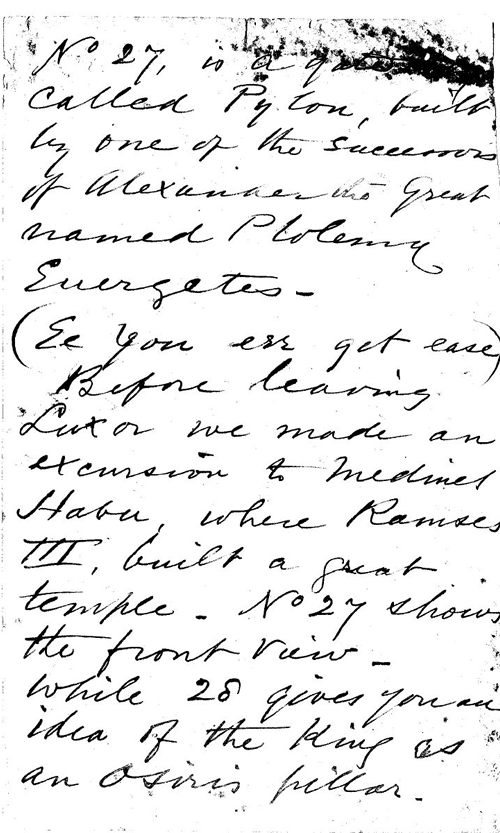 No 27, is a
called Pylon, built
by one of the successors
of Alexander the Great
named Ptolemy
Euergetes -
(Ee you err get ease)
Before leaving
Luxor we made an
excursion to Medinet
Habu, where Ramses
III, built a great
temple - No 27 shows
the front view -
while 28 gives you an
idea of the King as
an Osiris pillar.